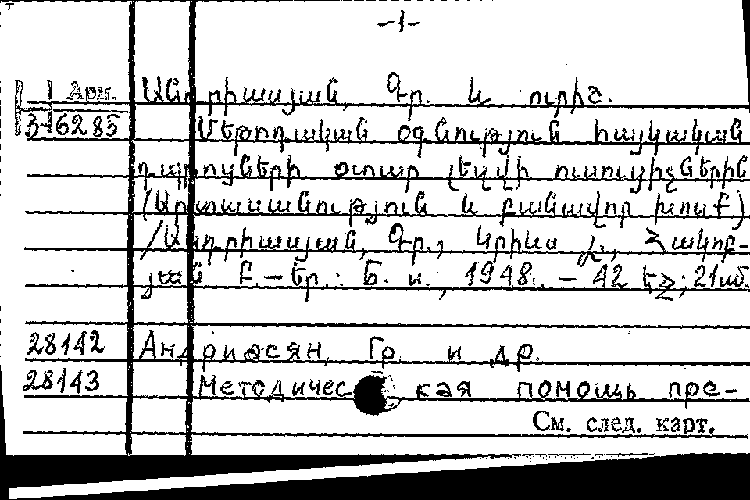 -1-
Арм. Անդրիասյան, Գր. և ուրիշ.
3-6285 Մեթոդական օգնություն հայկական
դպրոցների օտար լեզվի ուսուցիչներին
(Արտասանություն և բանավոր խոսք)
/Անդրիասյան, Գր., Կրիխս Լ., Հակոբ-
յան Բ. - Եր.: Б. и., 1948. - 42 էջ; 21սմ.
28142 Андриасян, Гр. и др.
28143 Методическая помощь пре-
См. след. карт.